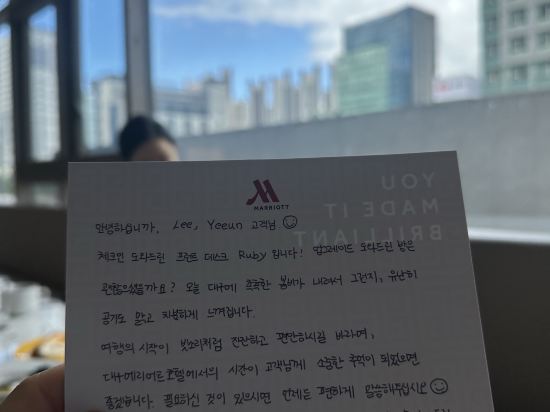 MARRIOTT
YOU
MADE IT
BRILLIANT
안녕하십니까, Lee, Yeeun 고객님
체크인 도와드린 프런트 데스크 Ruby 입니다! 업그레이드 도와드린 방은
괜찮으셨을까요? 오늘 대구에 촉촉한 봄비가 내려서 그런지, 유난히
공기도 맑고 차분하게 느껴집니다.
여행의 시작이 빗소리처럼 잔잔하고 편안하시길 바라며,
대구메리어트호텔에서의 시간이 고객님께 소중한 추억이 되었으면
좋겠습니다. 필요하신 것이 있으시면 언제든 편하게 말씀해주십시오